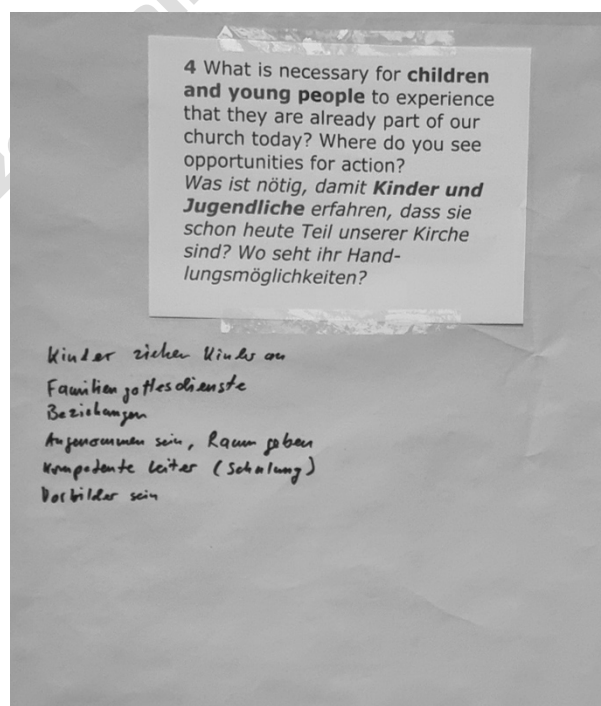 4 What is necessary for children
and young people to experience
that they are already part of our
church today? Where do you see
opportunities for action?
Was ist nötig, damit Kinder und
Jugendliche erfahren, dass sie
schon heute Teil unserer Kirche
sind? Wo seht ihr Hand-
lungsmöglichkeiten?
Kinder ziehen Kinder an
Familiengottesdienste
Beziehungen
Angenommen sein, Raum geben
Kompetente Leiter (Schulung)
Vorbilder sein